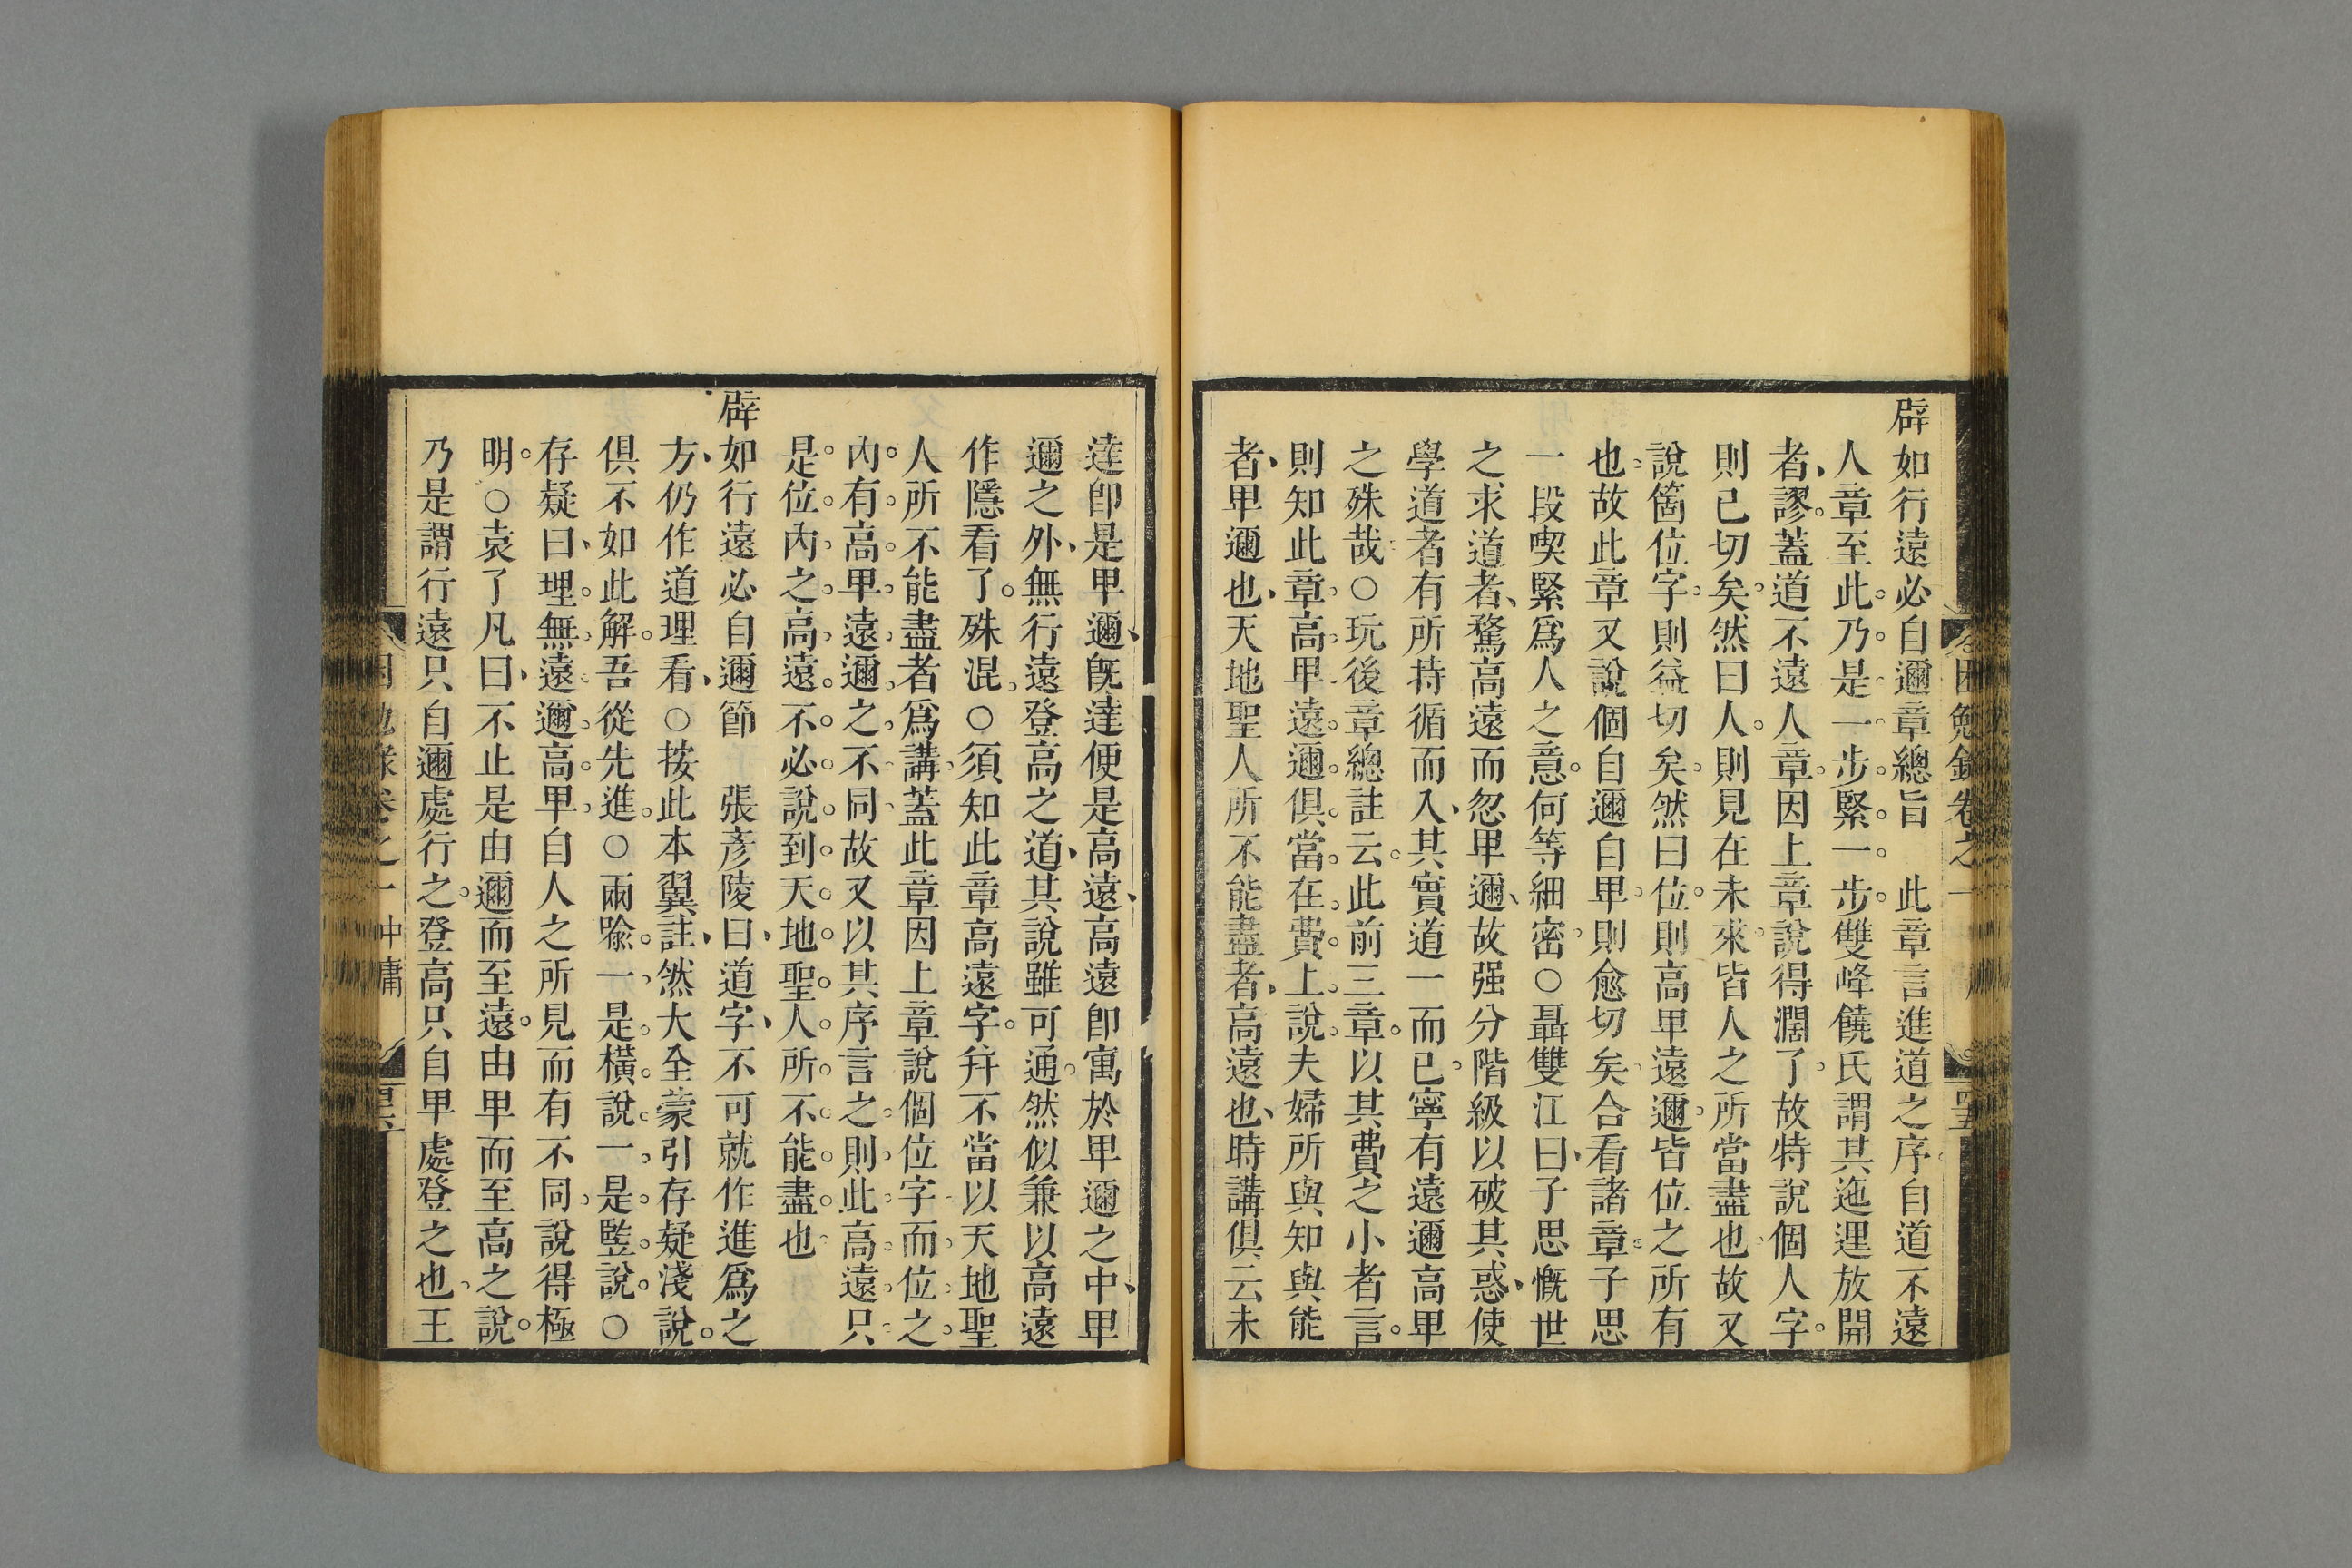 辟如行遠必自邇章總旨　此章言進道之序自道不遠
人章至此乃是一步緊一步雙峰饒氏謂其迤逞放開
者謬蓋道不遠人章因上章說得濶了故特說個人字
則已切矣然曰人則見在未來皆人之所當盡也故又
說箇位字則益切矣然曰位則高甲遠邇皆位之所有
也故此章又說個自邇自甲則愈切矣合看諸章子思
一段喫緊爲人之意何等細密○聶雙江曰子思慨世
之求道者騖高遠而忽甲邇故强分階級以破其惑使
學道者有所持循而入其實道一而已寧有遠邇高甲
之殊哉○玩後章總註云此前三章以其費之小者言
則知此章高甲遠邇俱當在費上說夫婦所與知與能
者甲邇也天地聖人所不能盡者高遠也時講俱云未
達卽是甲邇旣達便是高遠高遠卽寓於甲邇之中甲
邇之外無行遠登高之道其說雖可通然似兼以高遠
作隱看了殊混○須知此章高遠字幷不當以天地聖
人所不能盡者爲講蓋此章因上章說個位字而位之
內有高甲遠邇之不同故又以其序言之則此高遠只
是位內之高遠不必說到天地聖人所不能盡也
辟如行遠必自邇節　張彥陵曰道字不可就作進爲之
方仍作道理看○按此本翼註然大全蒙引存疑淺說
俱不如此解吾從先進○兩喩一是橫說一是竪說○
存疑曰理無遠邇高甲自人之所見而有不同說得極
明○袁了凡曰不止是由邇而至遠由甲而至高之說
乃是謂行遠只自邇處行之登高只自甲處登之也王
卷之一 中庸